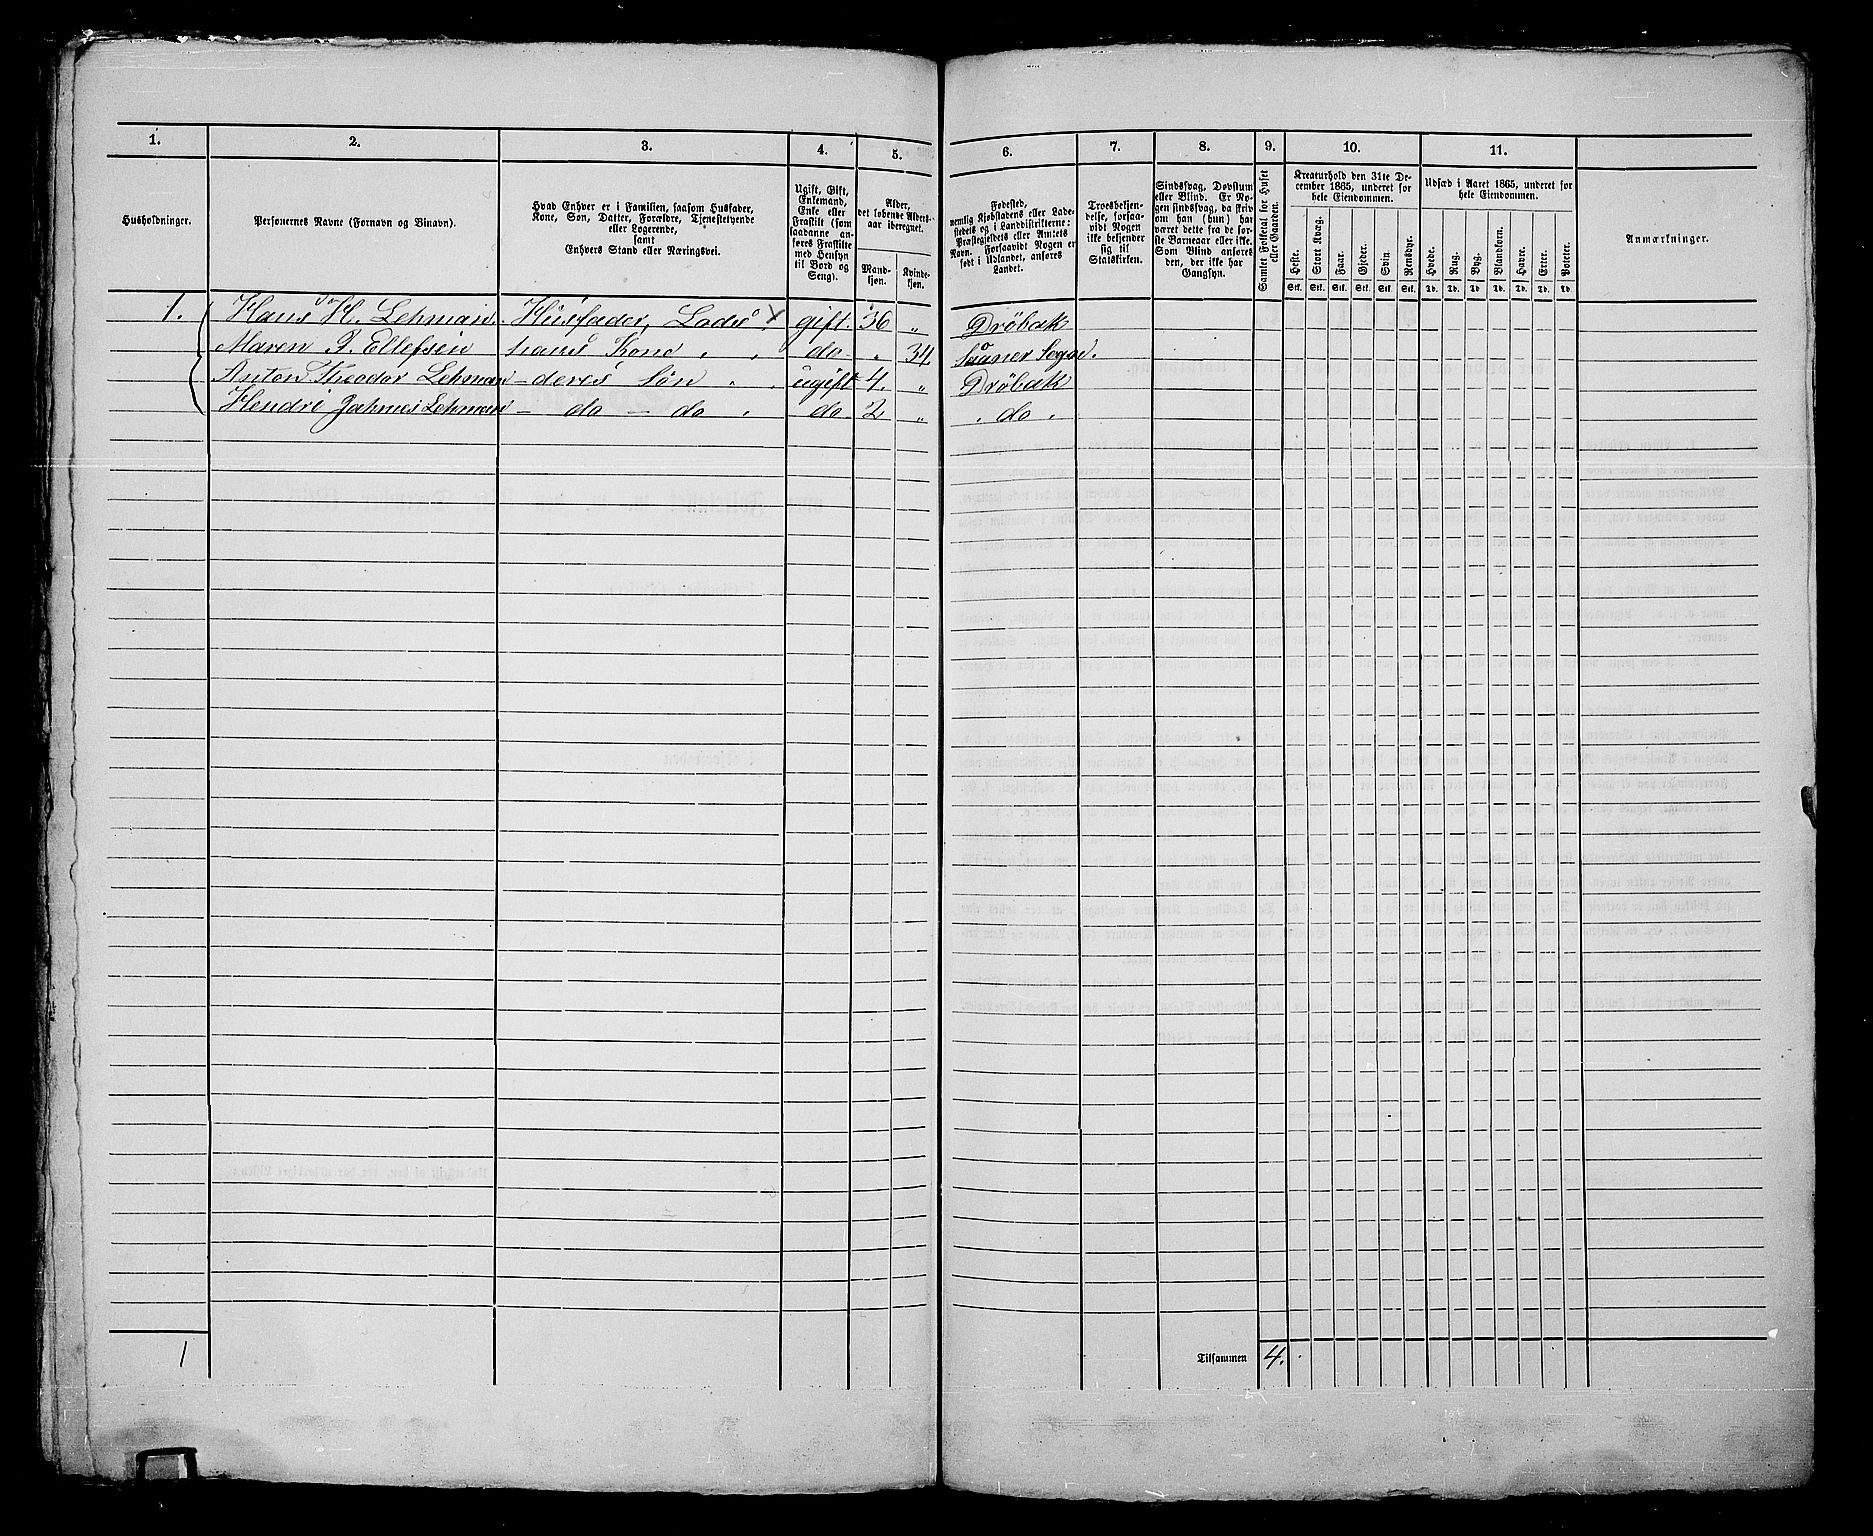 1. 2. 3. 4. 5. 6. 7. 8. 9. 10. 11.
Husholdninger.
Personernes Navne (Fornavn og Binavn).
Hvad Enhver er i Familien, saasom Husfader,
Kone, Søn, Datter, Forældre, Tjenestetyende
eller Logerende,
samt
Enhvers Stand eller Næringsvei.
Ugift, Gift,
Enkemand,
Enke eller
Fraskilt (som
saadanne an-
føres Fraskilte
med Hensyn
til Bord og
Seng).
Alder,
det løbende Alders-
aar iberegnet.
Mand-
kjøn.
Kvinde-
kjøn.
Fødested,
nemlig Kjøbstadens eller Lade-
stedets og i Landdistrikterne:
Præstegjeldets eller Amtets
Navn. Forsaavidt Nogen er
født i Udlandet, anføres
Landet.
Troesbekjen-
delse, forsaa-
vidt Nogen
ikke bekjender
sig til
Statskirken.
Sindssvag, Døvstum
eller Blind. Er No-
gen sindssvag, da skriv
om han (hun) har
været dette fra de før-
ste Barneaar eller ikke.
Som Blind anføres
den, der ikke har
Gangsyn.
Samlet Folketal for Huset
eller Gaarden.
Kreaturhold den 31te De-
cember 1865, underet for
hele Eiendommen.
Heste. Stort Kvæg. Faar. Gjeder. Svin. Rensdyr.
Stk. Stk. Stk. Stk. Stk. Stk.
Udsæd i Aaret 1865, underet for
hele Eiendommen.
Hvede. Rug. Byg. Blandkorn. Havre. Erter. Poteter.
Td. Td. Td. Td. Td. Td. Td.
Anmærkninger.
1. Hans H. Lehman. Husfader, Lods gift. 36 „ Dröbak
Maren P. Ellefsen hans Kone do - 34. Sogn.
Anton Theodor Lehman - deres Søn ugift 4. „ Dröbak
Hendri Jahmes Lehman - do - do do 2 „ do
1
Tilsammen 4.